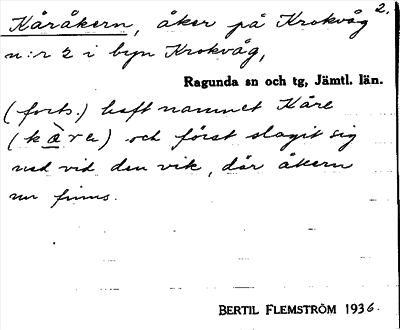 2.
Kåråkern, åker på Krokvåg
n:r 2 i byn Krokvåg,
Ragunda sn och tg, Jämtl. län.
(forts.) haft namnet Kåre
(kὰre) och först slagit sig
ned vid den vik, där åkern
nu finns.
BERTIL FLEMSTRÖM 1936.